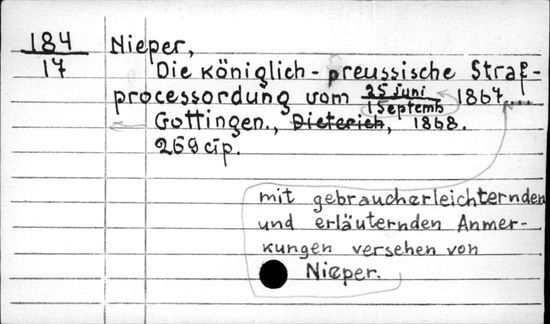 184
17
Nieper,
Die königlich-preussische Straf-
processordung vom 25 juni
1 Septemb 1867....
Gottingen., Dieterich, 1868.
mit gebraucherleichternden
und erläuternden Anmer-
kungen versehen von
Nieper.